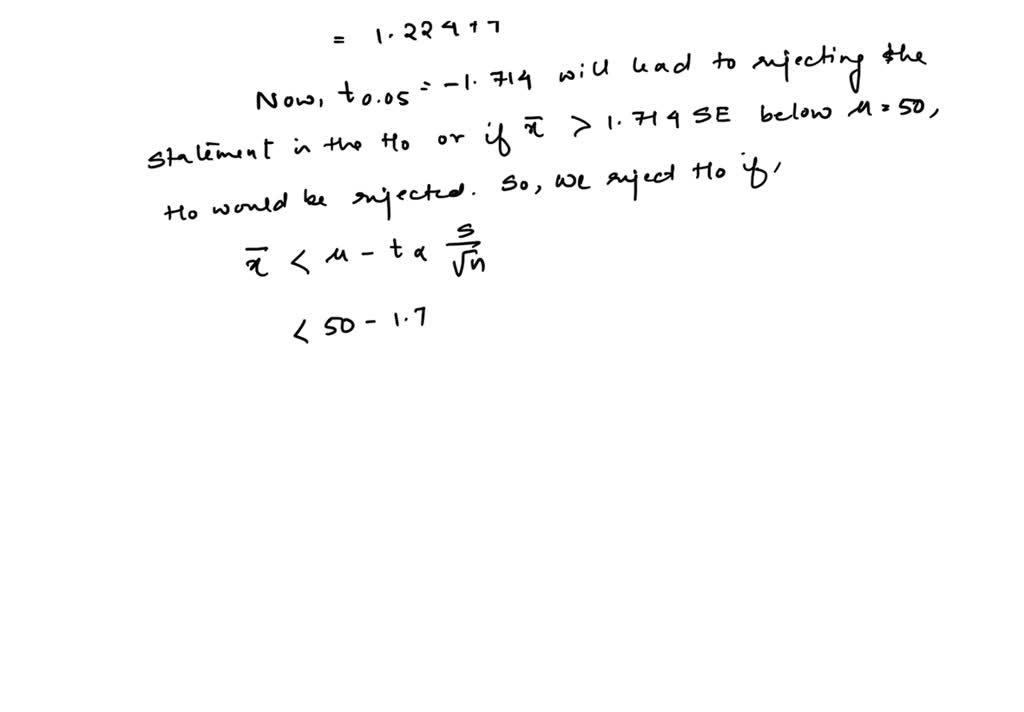 = 1.22474
Now, t0.05 = -1.714 will lead to rejecting the
statement in the H0 or if x̄ > 1.714 SE below μ = 50,
H0 would be rejected. So, we reject H0 if,
x̄ < μ - tα s/√n
< 50 - 1.7